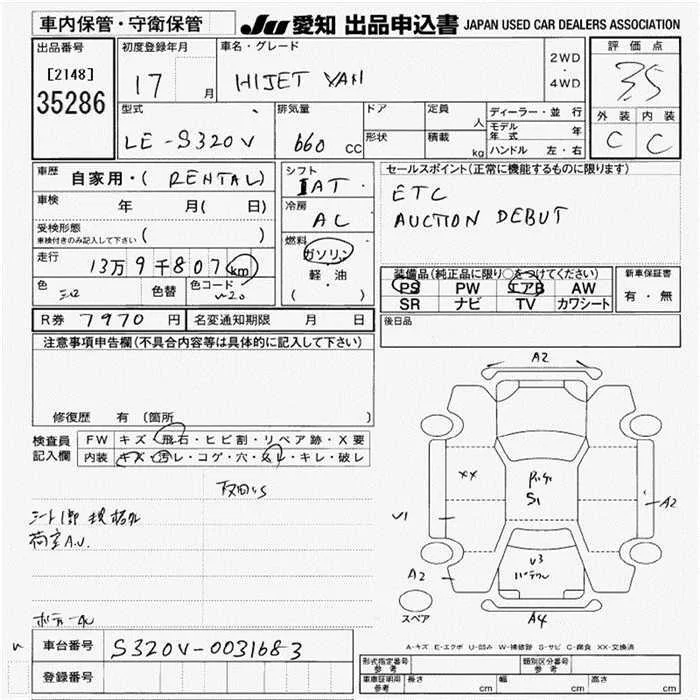 車内保管・守衛保管
JU 愛知 出品申込書 JAPAN USED CAR DEALERS ASSOCIATION
出品番号
[2148]
35286
初度登録年月
17 月
車名・グレード
HIJET VAN
2WD
・
4WD
評価点
3.5
外装 内装
C C
型式
LE-S320V
排気量
660 cc
ドア
形状
定員 人
積載 kg
ディーラー・並行
モデル年式 年
ハンドル 左・右
車歴
自家用・( RENTAL )
車検 年 月( 日)
受検形態
車検付きのみ記入して下さい ( )
走行
13万9千807 km
色
色替
色コード
W-20
シフト
IAT
冷房
AC
燃料
ガソリン
軽油
( )
セールスポイント(正常に機能するものに限ります)
ETC
AUCTION DEBUT
装備品(純正品に限り○をつけてください)
PS PW エアB AW
SR ナビ TV カワシート
新車保証書
有・無
R券 7970 円 名変通知期限 月 日
後日品
注意事項申告欄(不具合内容等は具体的に記入して下さい)
修復歴 有 (箇所 )
検査員
記入欄
FW キズ・飛石・ヒビ割・リペア跡・X要
内装 キズ・汚レ・コゲ・穴・スレ・キレ・破レ
荷室A.U.
A2
XX
S1
U1
A2
A2
U3
A4
スペア
A-キズ E-エクボ U-凹み W-補修跡 S-サビ C-腐食 XX-交換済
車台番号 S320V-0031683
登録番号
形式指定番号
参考
類別区分番号
参考
車庫証明用
参考
長さ cm 幅 cm 高さ cm